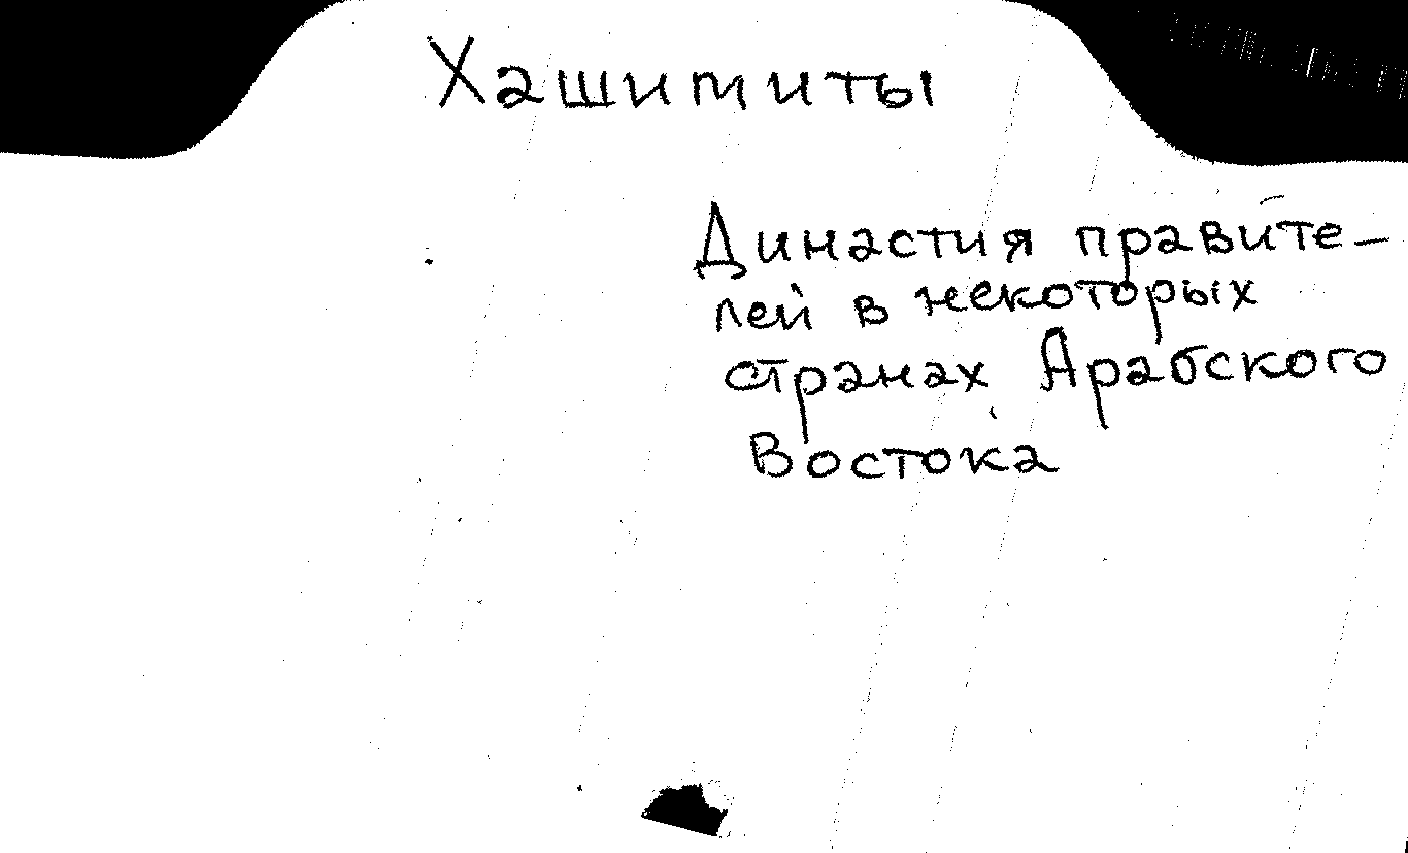 Хашимиты
Династия правите-
лей в некоторых
странах Арабского
Востока